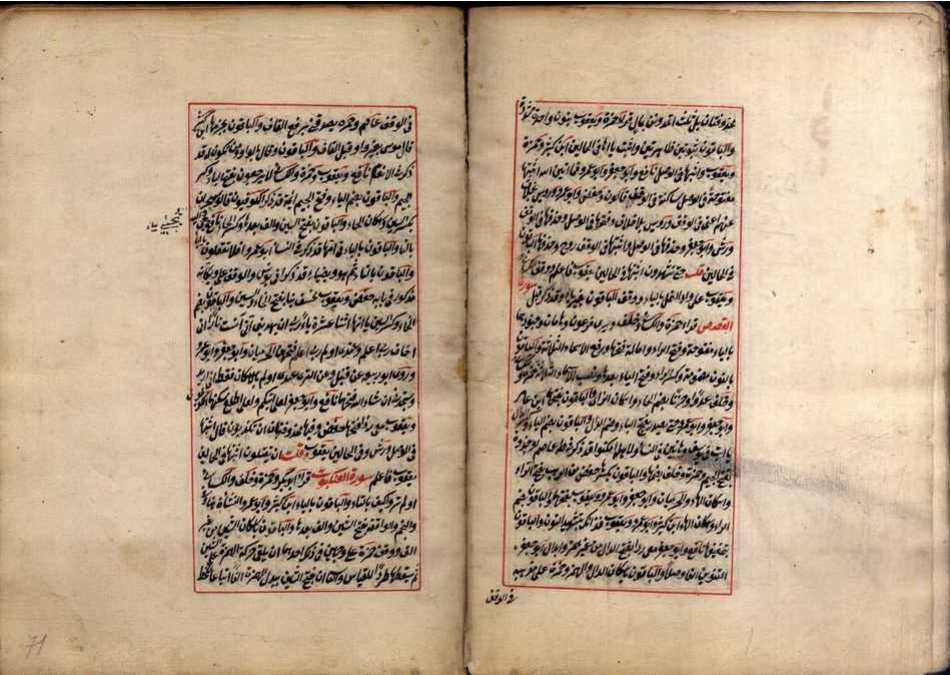 محذوفتان اتمدونن بمال قرأ حمزة ويعقوب بنون واحدة مشددة
والباقون بنونين ظاهرتين واثبت الياء في الحالين ابن كثير وحمزة
ويعقوب واثبتها في الوصل نافع وابو جعفر وابو عمرو فما آتاني الله اثبتها
مفتوحة في الوصل ساكنة في الوقف قالون وحفص وابو عمرو
في الوقف ورويس بلا خلاف وفتحها في الوصل وحذفها في الوقف
ورش وابو جعفر وحذفها في الوصل واثبتها في الوقف روح وحذفها الباقون
في الحالين قلت حتى تشهدون اثبتها في الحالين يعقوب فاعلم ووقف
ويعقوب على واد النمل بالياء ووقف الباقون بغير ياء وقد ذكر قبل
سورة
القصص قرأ حمزة والكسائي وخلف ويرى فرعون وهامان وجنودهما
بالياء مفتوحة وفتح الراء وامالة فتحها ورفع الاسماء الثلاثة والباقون
بالنون مضمومة وكسر الراء وفتح الياء بعدها ونصب الاسماء الثلاثة حمزة والكسائي
وخلف عدوا وحزنا بضم الحاء واسكان الزاي والباقون بفتحها ابن عامر
وابو جعفر وابو عمرو حتى يصدر بفتح الياء وضم الدال والباقون بضم الياء وكسر الدال
عاصم او جذوة
بفتح الجيم وحمزة وخلف بضمها والباقون بكسرها حفص من الرهب بفتح الراء
واسكان الهاء والحرميان وابو جعفر وابو عمرو ويعقوب بفتحهما والباقون بضم
الراء واسكان الهاء ابن كثير وابو عمرو ورويس فذانك بتشديد النون والباقون
بتخفيفها نافع وابو جعفر معي ردا بفتح الدال من غير همز وابدل ابو جعفر
التنوين الفا وصلا والباقون باسكان الدال والهمز وحمزة على مذهبه
في الوقف
في الوقف عاصم وحمزة يصدقني برفع القاف والباقون بجزمها ابن كثير
قال موسى بغير واو قبل القاف والباقون وقال بالواو ومن تكون له قد
ذكر في الانعام نافع ويعقوب وحمزة والكسائي لا يرجعون بفتح الياء وكسر
الجيم والباقون بضم الياء وفتح الجيم ائمة قد ذكر الكوفيون قالوا سحران
بكسر السين واسكان الحاء والباقون بفتح السين والف بعدها وكسر الحاء نافع
بالتاء والباقون بالياء في امها قد ذكر في النساء ابو عمرو افلا يعقلون بالياء
والباقون بالتاء ثم هو وبضياء قد ذكرا في يونس والوقف على ويكانه
مذكور في بابه حفص ويعقوب لخسف بنا بفتح الخاء والسين والباقون بضم
الخاء وكسر السين ياءاتها اثنتا عشرة ياء ربي ان يهديني اني آنست نارا اني
اخاف ربي اعلم ربي اعلم فتحها الحرميان وابو جعفر وابو عمرو
عندي اولم بالاسكان فقط اني اريد
ستجدني ان شاء الله فتحها نافع وابو جعفر لعلي آتيكم ولعلي اطلع سكنها الكوفيون
ويعقوب معي ردا فتحها حفص وفيها محذوفتان ان يكذبون قال اثبتها
في الوصل ورش وفي الحالين يعقوب قلت ان يقتلون اثبتها في الحالين
يعقوب فاعلم سورة العنكبوت قرأ ابو بكر وحمزة وخلف والكسائي
اولم تروا كيف بالتاء والباقون بالياء ابن كثير وابو عمرو النشأة هنا
والنجم والواقعة بفتح الشين والف بعدها والباقون باسكان الشين من غير
الف ووقف حمزة على وجهين في ذكر احدهما ان يلقي حركة الهمزة على الشين
ثم يسقطها طردا للقياس والثاني ان يفتح الشين يبدل الهمزة الفا اتباعا للخط